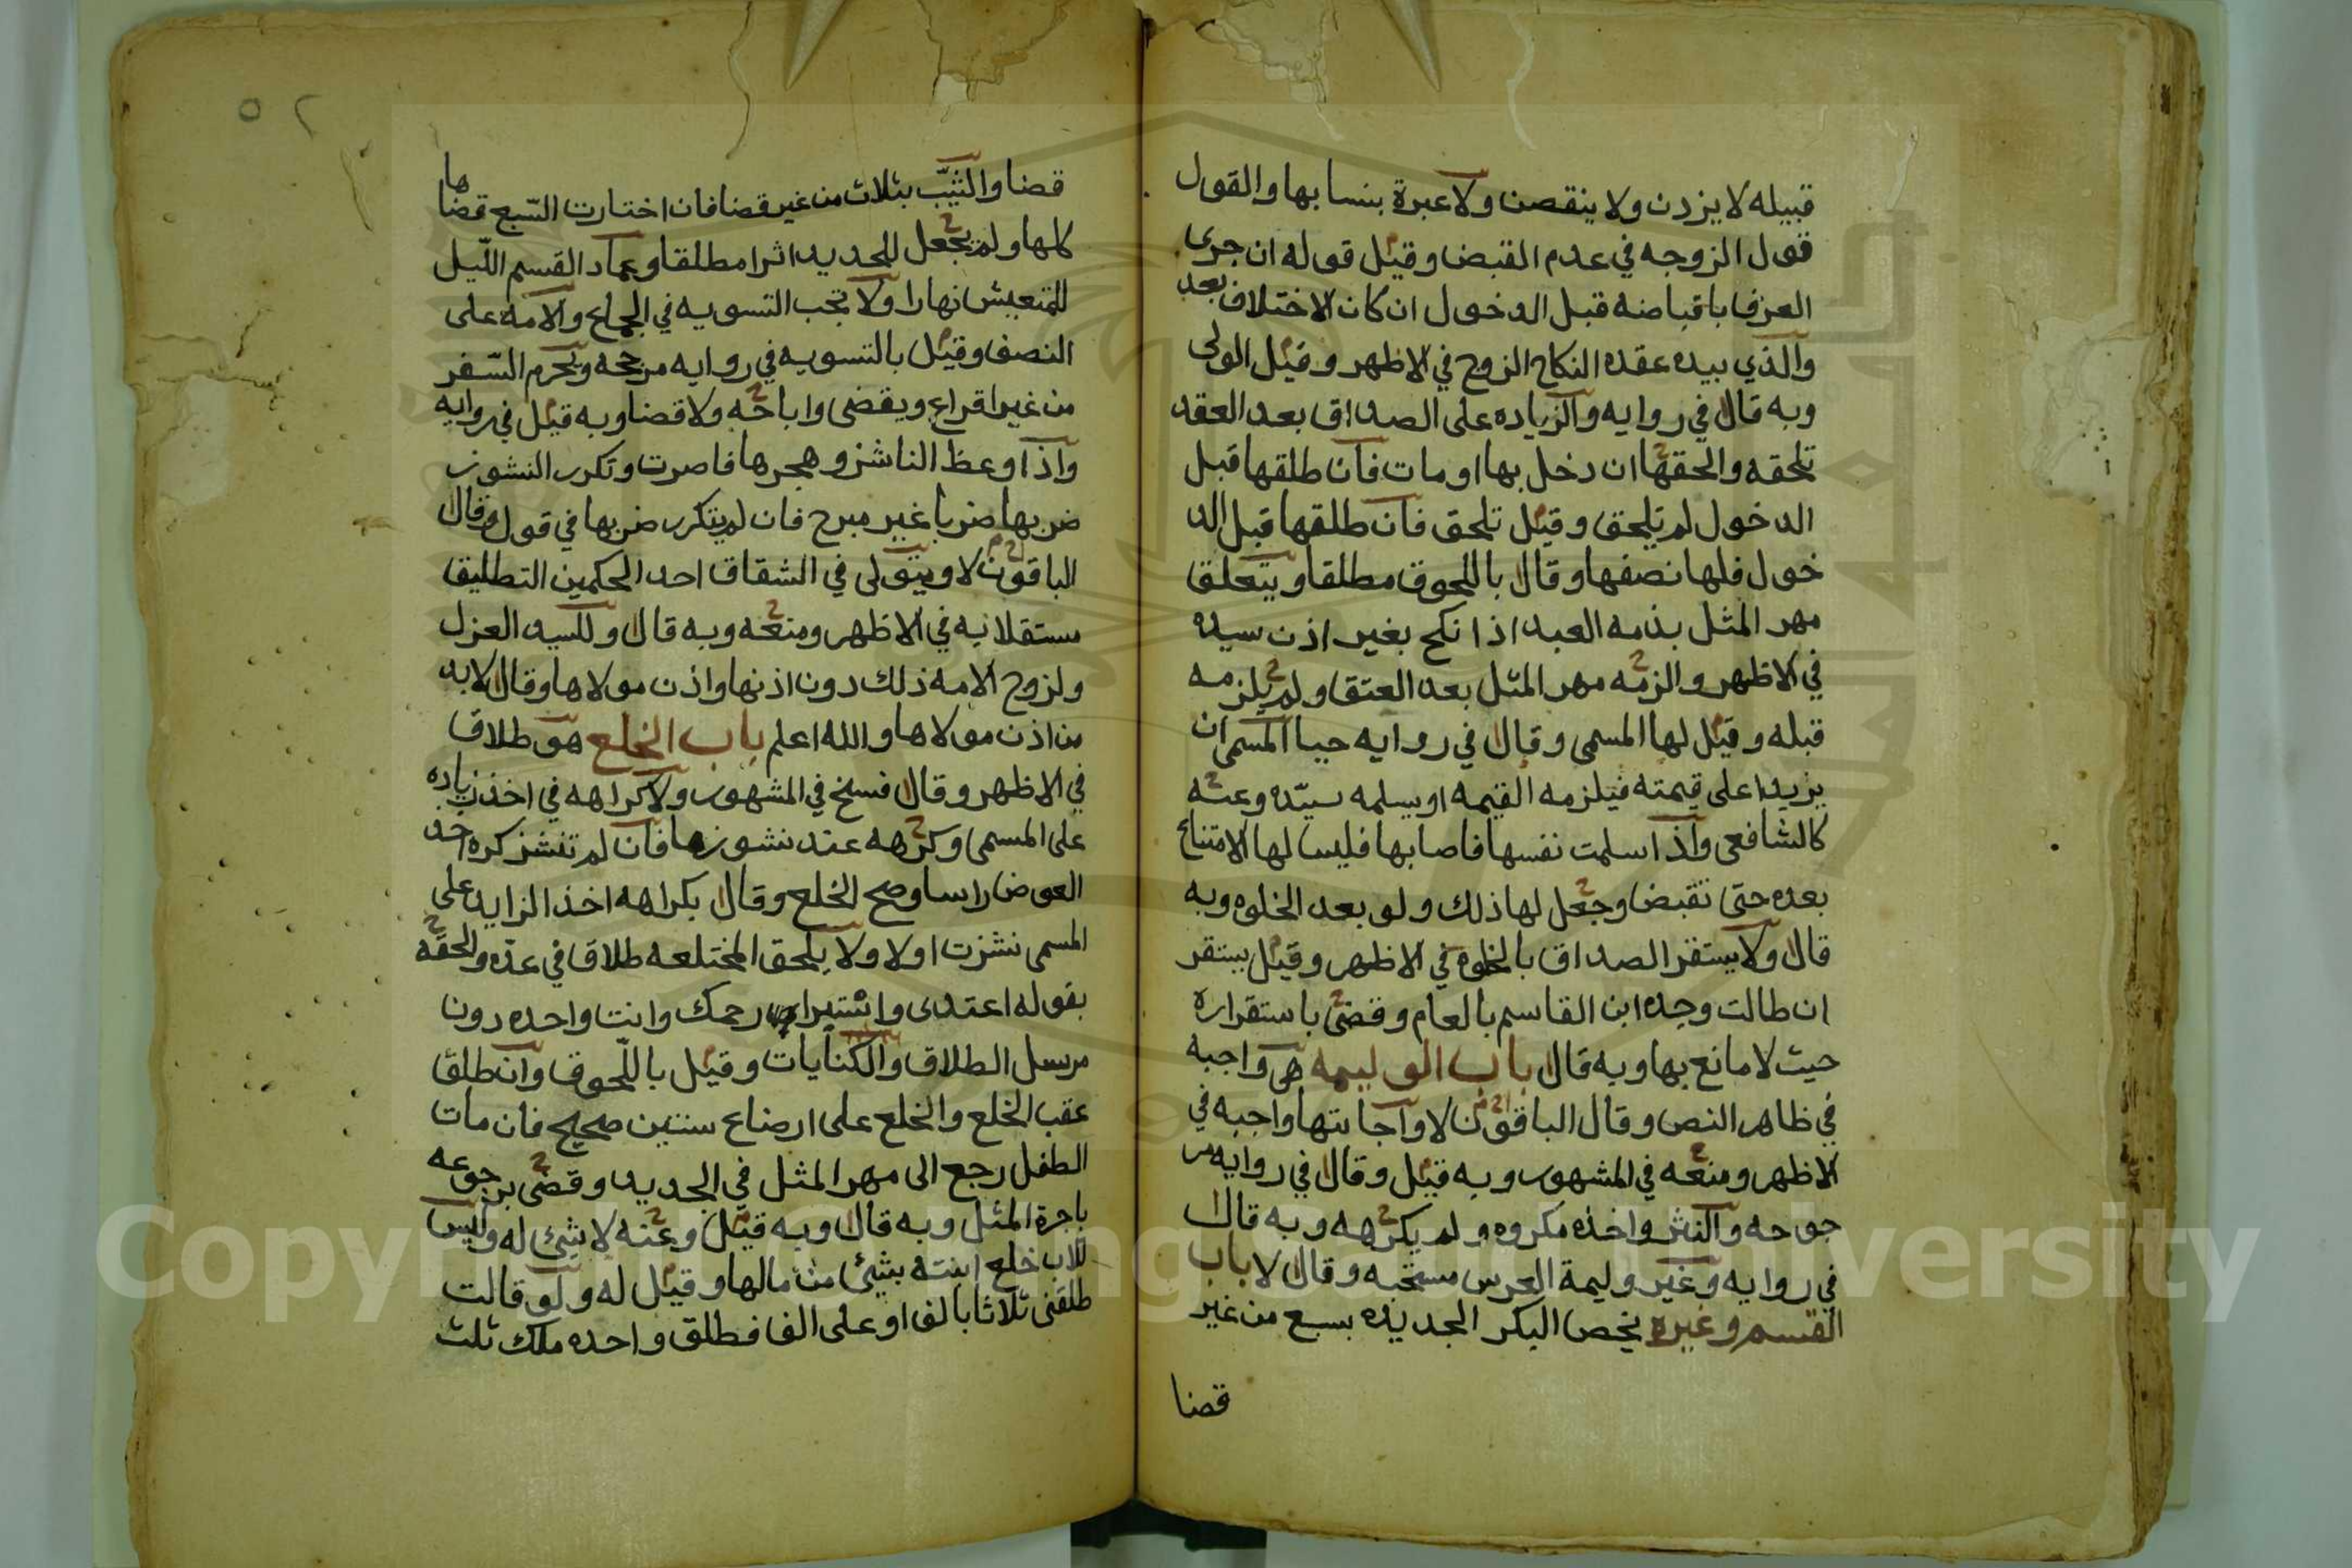 قبيله لا يزدن ولا ينقصن ولا عبرة بنسابها والقول
قول الزوجه في عدم القبض وقيل قوله ان جرى
العرف باقباضه قبل الدخول ان كان الاختلاف بعد
والذي بيده عقده النكاح الزوج في الاظهر وقيل الولى
وبه قال في روايه والزياده على الصداق بعد العقد
تلحقه والحقها ان دخل بها او مات فان طلقها قبل
الدخول لم تلحق وقيل تلحق فان طلقها قبل الد
خول فلها نصفها وقال باللحوق مطلقا ويتعلق
مهر المثل بذمه العبد اذا نكح بغير اذن سيده
في الاظهر والزمه مهر المثل بعد العتق ولم يلزمه
قبله وقيل لها المسمى وقال في روايه حيا المسمى ان
يزيد على قيمته فيلزمه القيمه او يسلمه سيّده وعنه
كالشافعى واذا سلمت نفسها فاصابها فليس لها الامتناع
بعده حتى تقبض وجعل لها ذلك ولو بعد الخلوه وبه
قال ولا يستقر الصداق بالخلوه في الاظهر وقيل يستقر
ان طالت وحده ابن القاسم بالعام وقضى باستقراره
حيث لا مانع بها وبه قال باب الوليمه هى واجبه
في ظاهر النص وقال الباقون لا واجابتها واجبه في
الاظهر ومنعه في المشهور وبه قيل وقال في روايه مر
جوحه والنثر واخذه مكروه ولم يكرهه وبه قال
في روايه وغير وليمة العرس مستحبه وقال لا باب
القسم وغيره يخص البكر الجديده بسبع من غير
قضا
٥٢
قضا والثيّب بثلاث من غير قضا فان اختارت السّبع قضاها
كلها ولم يجعل للجديد اثرا مطلقا وعماد القسم اللّيل
للمتعيش نهارا ولا تجب التسويه في الجماع والامه على
النصف وقيل بالتسويه في روايه مرجحه ويحرم السّفر
من غير اقراع ويقضى واباحه ولا قضا وبه قيل في روايه
واذا وعظ الناشز وهجرها فاصرت وتكرر النشوز
ضربها ضربا غير مبرح فان لم يتكرر ضربها في قول وقال
الباقون لا ويتولى في الشقاق احد الحكمين التطليق
مستقلا به في الاظهر ومنعه وبه قال وللسيد العزل
ولزوج الامه ذلك دون اذنها واذن مولاها وقال لا بد
من اذن مولاها والله اعلم باب الخلع هو طلاق
في الاظهر وقال فسخ في المشهور ولا كراهه في اخذ زياده
على المسمى وكرهه عند نشوزها فان لم تنشز كره اخذ
العوض راسا وصح الخلع وقال بكراهه اخذ الزايد على
المسمى نشزت اولا ولا يلحق المختلعه طلاق في عدّه والحقه
بقوله اعتدى واستبراي رحمك وانت واحده دون
مرسل الطلاق والكنايات وقيل باللّحوق وان طلق
عقب الخلع والخلع على ارضاع سنتين صحيح فان مات
الطفل رجع الى مهر المثل في الجديد وقضى برجوعه
باجرة المثل وبه قال وبه قيل وعنه لا شئ له وليس
للاب خلع ابنته بشئ من مالها وقيل له ولو قالت
طلقنى ثلاثا بالف او على الف فطلق واحده ملك ثلث